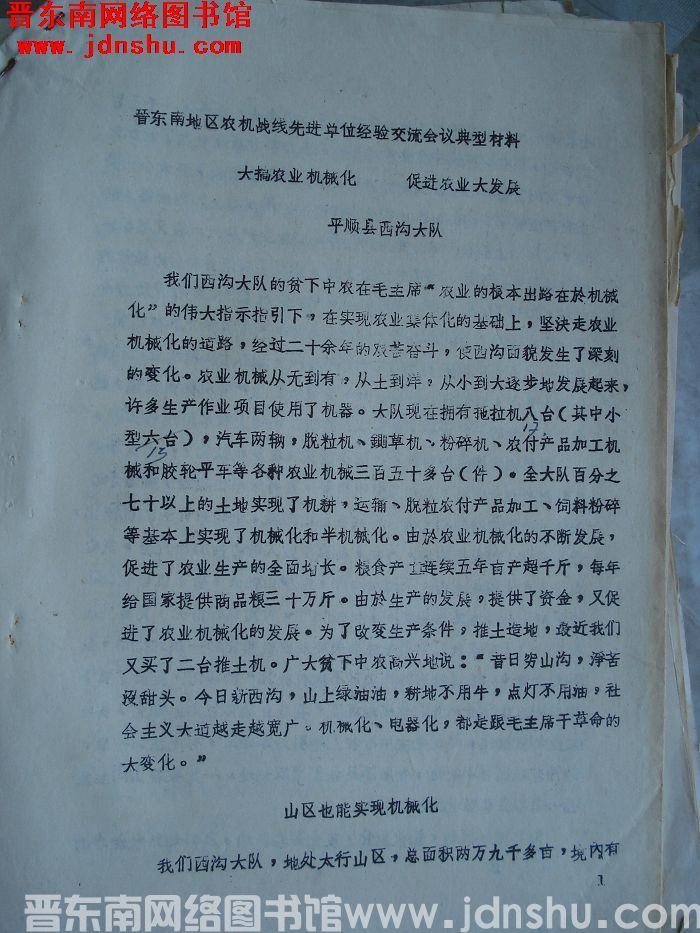 晋东南网络图书馆
www.jdnshu.com
晋东南地区农机战线先进单位经验交流会议典型材料
大搞农业机械化 促进农业大发展
平顺县西沟大队
我们西沟大队的贫下中农在毛主席“农业的根本出路在於机械
化”的伟大指示指引下，在实现农业集体化的基础上，坚决走农业
机械化的道路，经过二十余年的艰苦奋斗，使西沟面貌发生了深刻
的变化。农业机械从无到有，从土到洋，从小到大逐步地发展起来，
许多生产作业项目使用了机器。大队现在拥有拖拉机八台（其中小
17
型六台），汽车两辆，脱粒机、锄草机、粉碎机、农付产品加工机
15
械和胶轮平车等各种农业机械三百五十多台（件）。全大队百分之
七十以上的土地实现了机耕，运输、脱粒农付产品加工、饲料粉碎
等基本上实现了机械化和半机械化。由於农业机械化的不断发展，
促进了农业生产的全面增长。粮食产量连续五年亩产超千斤，每年
给国家提供商品粮三十万斤。由於生产的发展，提供了资金，又促
进了农业机械化的发展。为了改变生产条件，推土造地，最近我们
又买了二台推土机。广大贫下中农高兴地说：“昔日穷山沟，淨苦
没甜头。今日新西沟，山上绿油油，耕地不用牛，点灯不用油，社
会主义大道越走越宽广。机械化、电器化，都是跟毛主席干革命的
大变化。”
山区也能实现机械化
我们西沟大队，地处太行山区，总面积两万九千多亩，境内有
1
晋东南网络图书馆 www.jdnshu.com